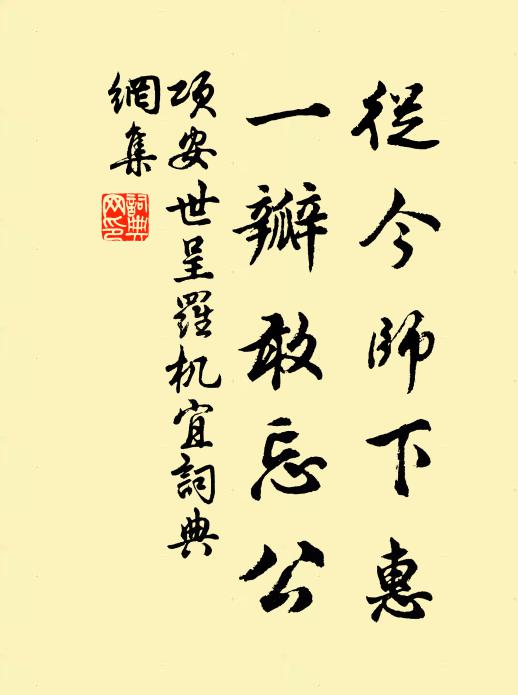 從今師下惠
一瓣敢忘公
項安世呈羅机宜詞典
網集
詞典
网印